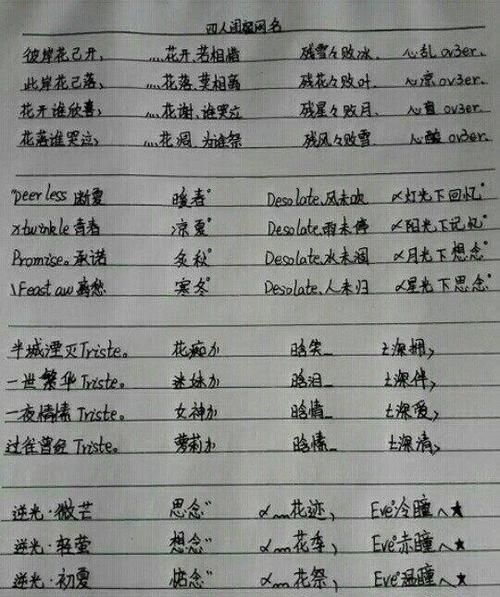 四人闺蜜网名
彼岸花已开, ﹏花开、若相惜 残雪々败冰、 心乱 ov3er.
此岸花已落, ﹏花落、莫相离 残花々败叶、 心凉 ov3er.
花开谁欣喜, ﹏花谢、谁哭泣 残星々败月、 心 ov3er.
花落谁哭泣, ﹏花凋、为谁祭 残风々败雪 心酸 ov3er.
"peerless 断夏 暖春° Desolate、风未吹 ∝灯光下回忆"
xtwinkle 青春 凉夏° Desolate、雨未停 ∝阳光下记忆"
Promise。承诺 炙秋° Desolate、水未涸 ∝月光下想念"
\Feast aw 离愁 寒冬° Desolate、人未归 ∝星光下思念"
半城湮灭Triste。 花痴か 晗笑_ 士深拥,
一世繁华Triste。 迷妹か 晗泪_ 士深伴,
一夜情愫Triste。 女神か 晗情_ 士深爱,
过往曾经Triste。 萝莉か 晗愫_ 士深清,
逆光·微芒 思念" ∝﹏花迹, Eve°冷瞳へ★
逆光·轻萤 想念" ∝﹏花季, Eve°赤瞳へ★
逆光·初夏 惦念" ∝﹏花祭, Eve°温瞳へ★